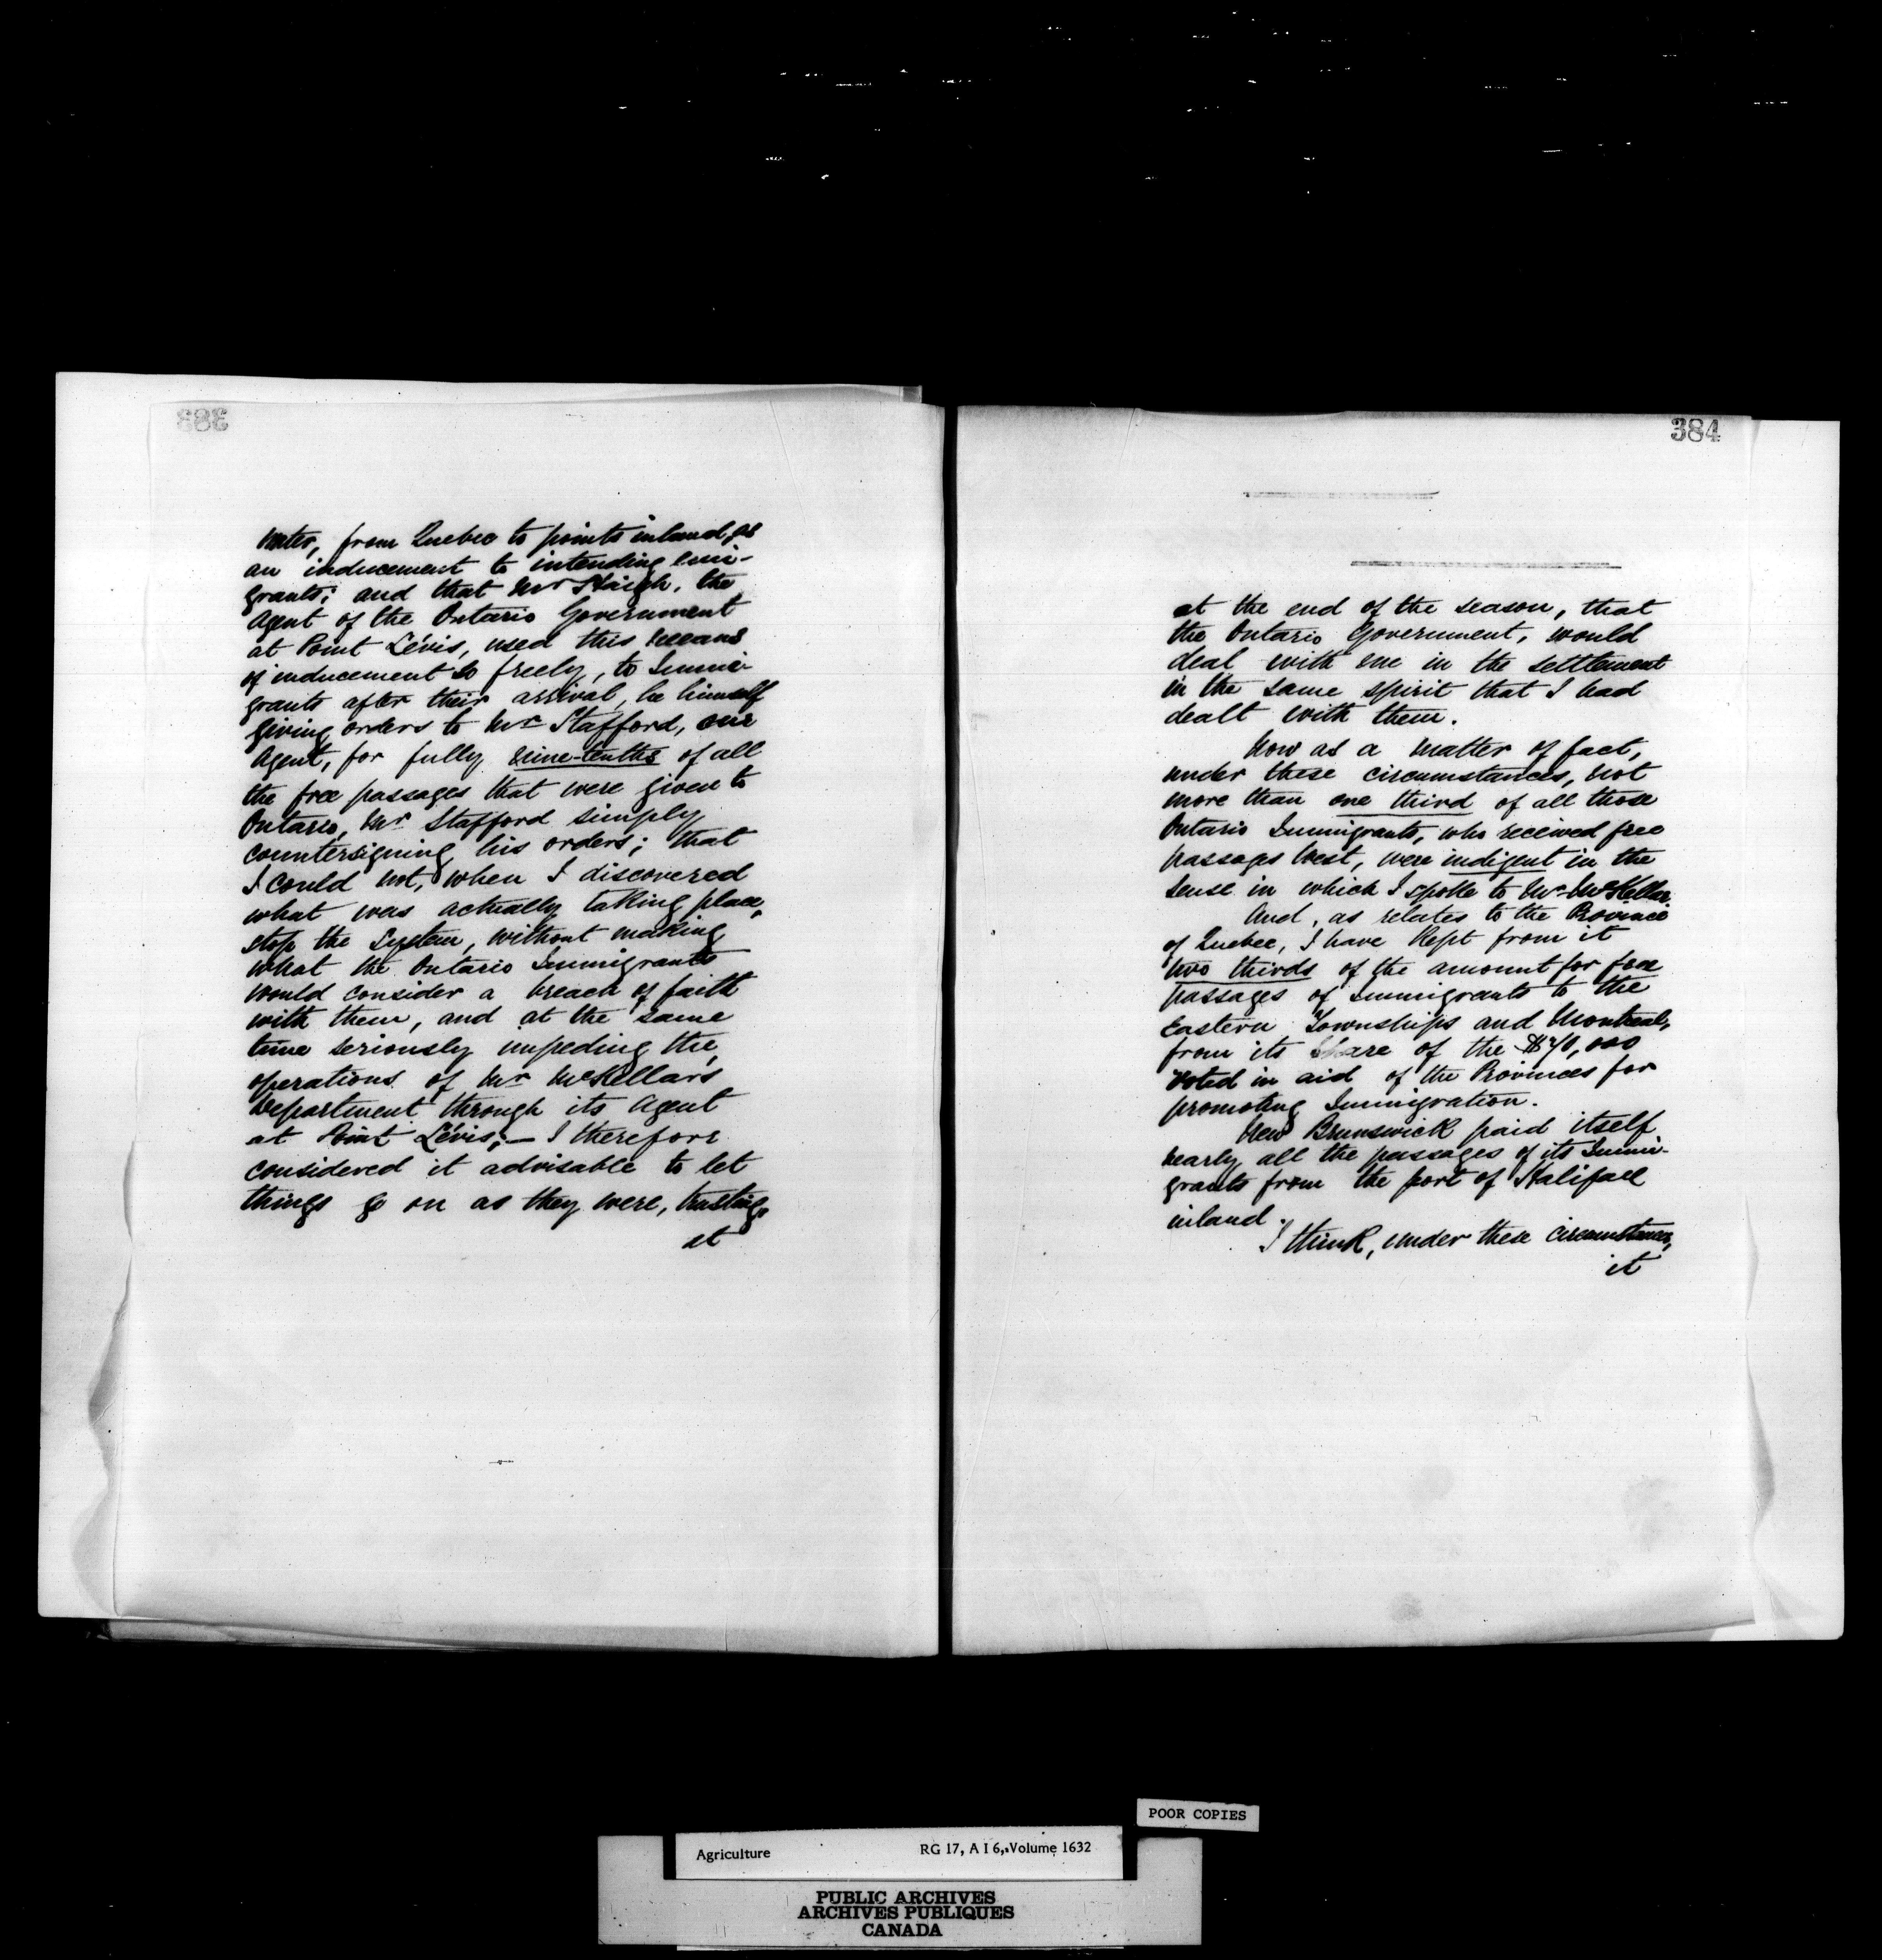 383
water, from Quebec to points inland, as
an inducement to intending emi-
grants; and that Mr Haigh, the
Agent of the Ontario Government
at Point Lévis, used this means
of inducement so freely, to Immi-
grants after their arrival, he himself
giving orders to Mr Stafford, our
Agent, for fully nine-tenths of all
the free passages that were given to
Ontario, Mr Stafford simply
countersigning his orders; that
I could not, when I discovered
what was actually taking place,
stop the system, without making
what the Ontario Immigrants
would consider a breach of faith
with them, and at the same
time seriously impeding the
operations of Mr McKellar's
Department through its Agent
at Point Lévis; — I therefore
considered it advisable to let
things go on as they were, trusting,
at
384
at the end of the season, that
the Ontario Government, would
deal with me in the settlement
in the same spirit that I had
dealt with them.
Now as a matter of fact,
under these circumstances, not
more than one third of all those
Ontario Immigrants, who received free
passages West, were indigent in the
sense in which I spoke to Mr McKellar.
And, as relates to the Province
of Quebec, I have kept from it
two thirds of the amount for free
passages of Immigrants to the
Eastern Townships and Montreal,
from its share of the $70,000
voted in aid of the Provinces for
promoting Immigration.
New Brunswick paid itself
nearly all the passages of its Immi-
grants from the port of Halifax
inland.
I think, under these circumstances,
it
POOR COPIES
Agriculture RG 17, A I 6, Volume 1632
PUBLIC ARCHIVES
ARCHIVES PUBLIQUES
CANADA